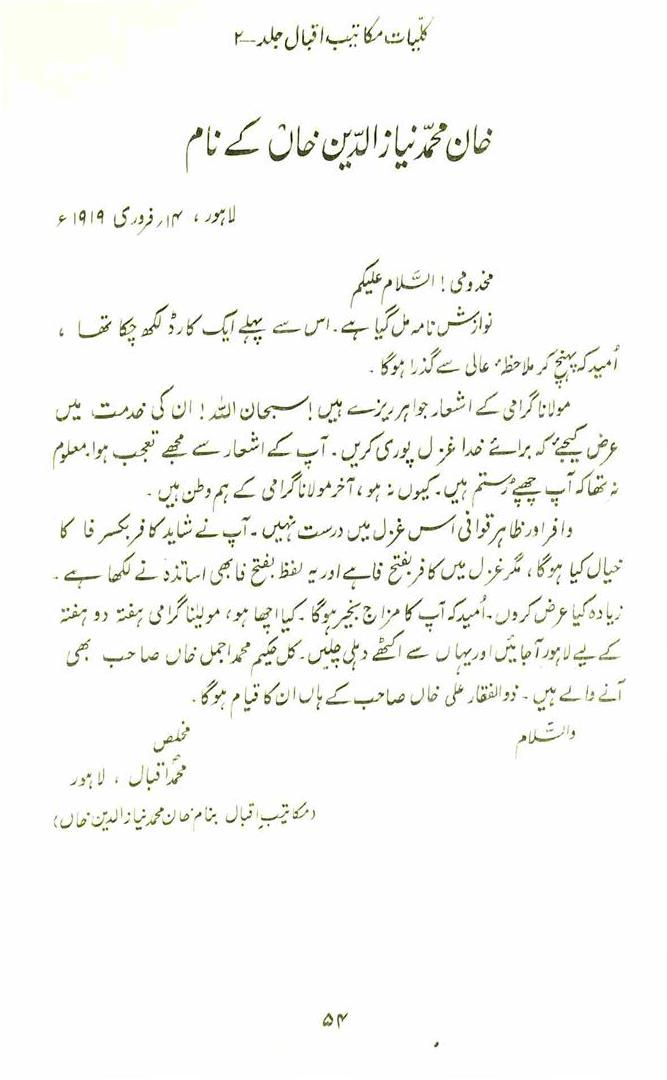 کلیّات مکاتیب اقبال جلد ۔ ۲
خان محمّد نیاز الدّین خاں کے نام
لاہور، ۱۴؍ فروری ۱۹۱۹ء
مخدومی! السّلام علیکم
نوازش نامہ مل گیا ہے۔ اس سے پہلے ایک کارڈ لکھ چکا تھا،
اُمید کہ پہنچ کر ملاحظۂ عالی سے گذرا ہوگا۔
مولانا گرامی کے اشعار جواہر ریزے ہیں! سبحان اللہ! ان کی خدمت میں
عرض کیجیے کہ برائے خدا غزل پوری کریں۔ آپ کے اشعار سے مجھے تعجب ہوا۔ معلوم
نہ تھا کہ آپ چھپے رُستم ہیں۔ کیوں نہ ہو، آخر مولانا گرامی کے ہم وطن ہیں۔
وافر اور ظاہر قوافی اس غزل میں درست نہیں۔ آپ نے شاید کافر بکسر فا کا
خیال کیا ہوگا، مگر غزل میں کافر بفتح فا ہے اور یہ لفظ بفتح فا بھی اساتذہ نے لکھا ہے۔
زیادہ کیا عرض کروں۔ اُمید کہ آپ کا مزاج بخیر ہوگا۔ کیا اچھا ہو، مولینا گرامی ہفتہ دو ہفتہ
کے لیے لاہور آجائیں اور یہاں سے اکٹھے دہلی چلیں۔ کل حکیم محمد اجمل خاں صاحب بھی
آنے والے ہیں۔ ذوالفقار علی خاں صاحب کے ہاں ان کا قیام ہوگا۔
والسّلام مخلص
محمدؐ اقبال، لاہور
(مکاتیبِ اقبال بنام خان محمد نیاز الدین خاں)
۵۴